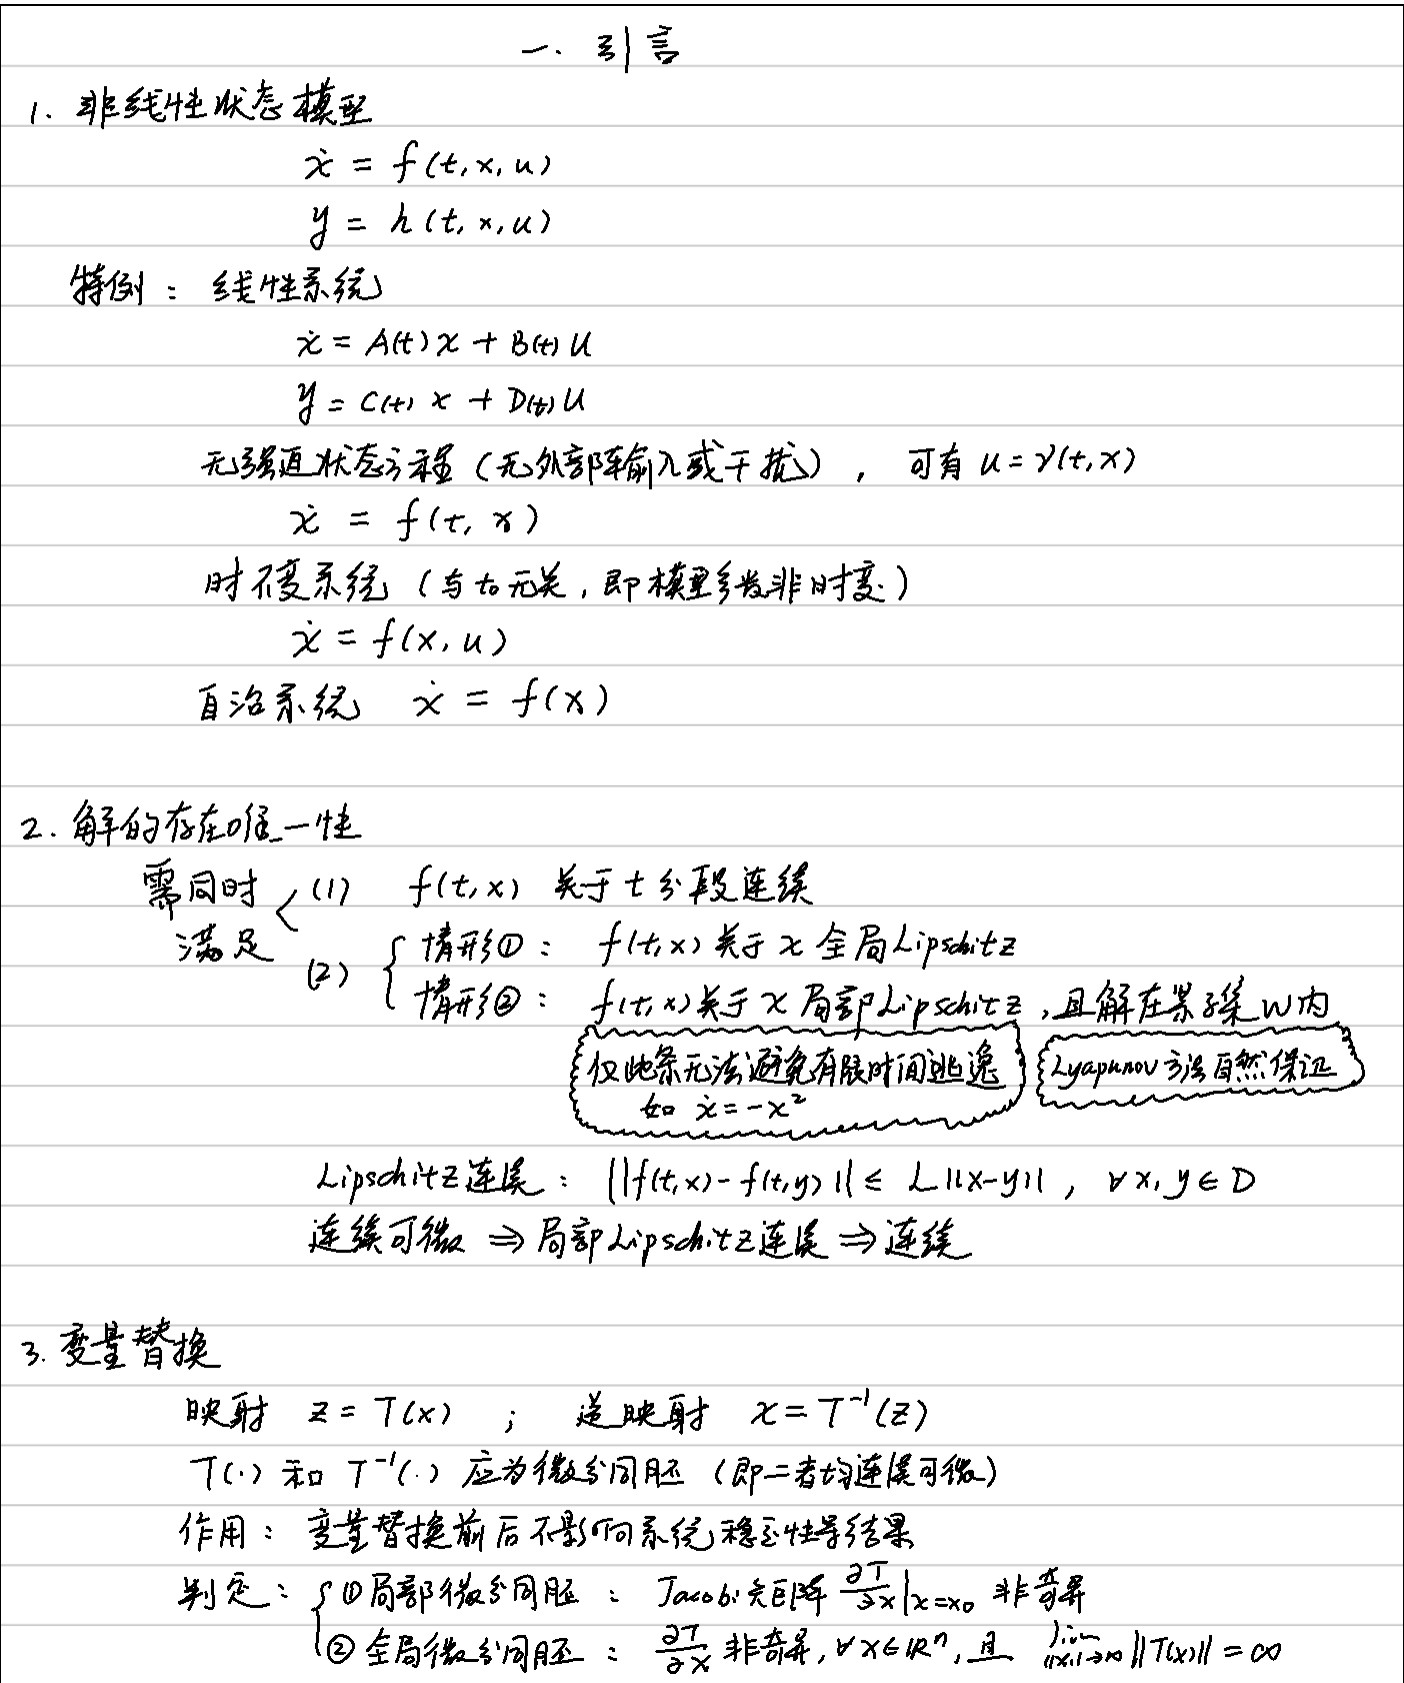 一. 引言
1. 非线性状态模型
ẋ = f(t, x, u)
y = h(t, x, u)
特例：线性系统
ẋ = A(t)x + B(t)u
y = C(t)x + D(t)u
无强迫状态方程（无外部输入或干扰），可有 u = γ(t, x)
ẋ = f(t, x)
时不变系统（与 t₀ 无关，即模型参数非时变）
ẋ = f(x, u)
自治系统 ẋ = f(x)
2. 解的存在唯一性
需同时满足 { (1) f(t,x) 关于 t 分段连续
(2) { 情形①： f(t,x) 关于 x 全局Lipschitz
情形②： f(t,x) 关于 x 局部Lipschitz，且解在紧子集 W 内
仅此条无法避免有限时间逃逸
如 ẋ = -x²
Lyapunov 方法自然保证
Lipschitz连续： ||f(t,x) - f(t,y)|| ≤ L||x-y|| , ∀x, y ∈ D
连续可微 ⇒ 局部Lipschitz连续 ⇒ 连续
3. 变量替换
映射 z = T(x) ； 逆映射 x = T⁻¹(z)
T(·) 和 T⁻¹(·) 应为微分同胚（即二者均连续可微）
作用：变量替换前后不影响系统稳定性等结果
判定： { ①局部微分同胚： Jacobi矩阵 ∂T/∂x|x=x₀ 非奇异
②全局微分同胚： ∂T/∂x 非奇异, ∀x∈ℝⁿ, 且 lim ||x||→∞ ||T(x)|| = ∞